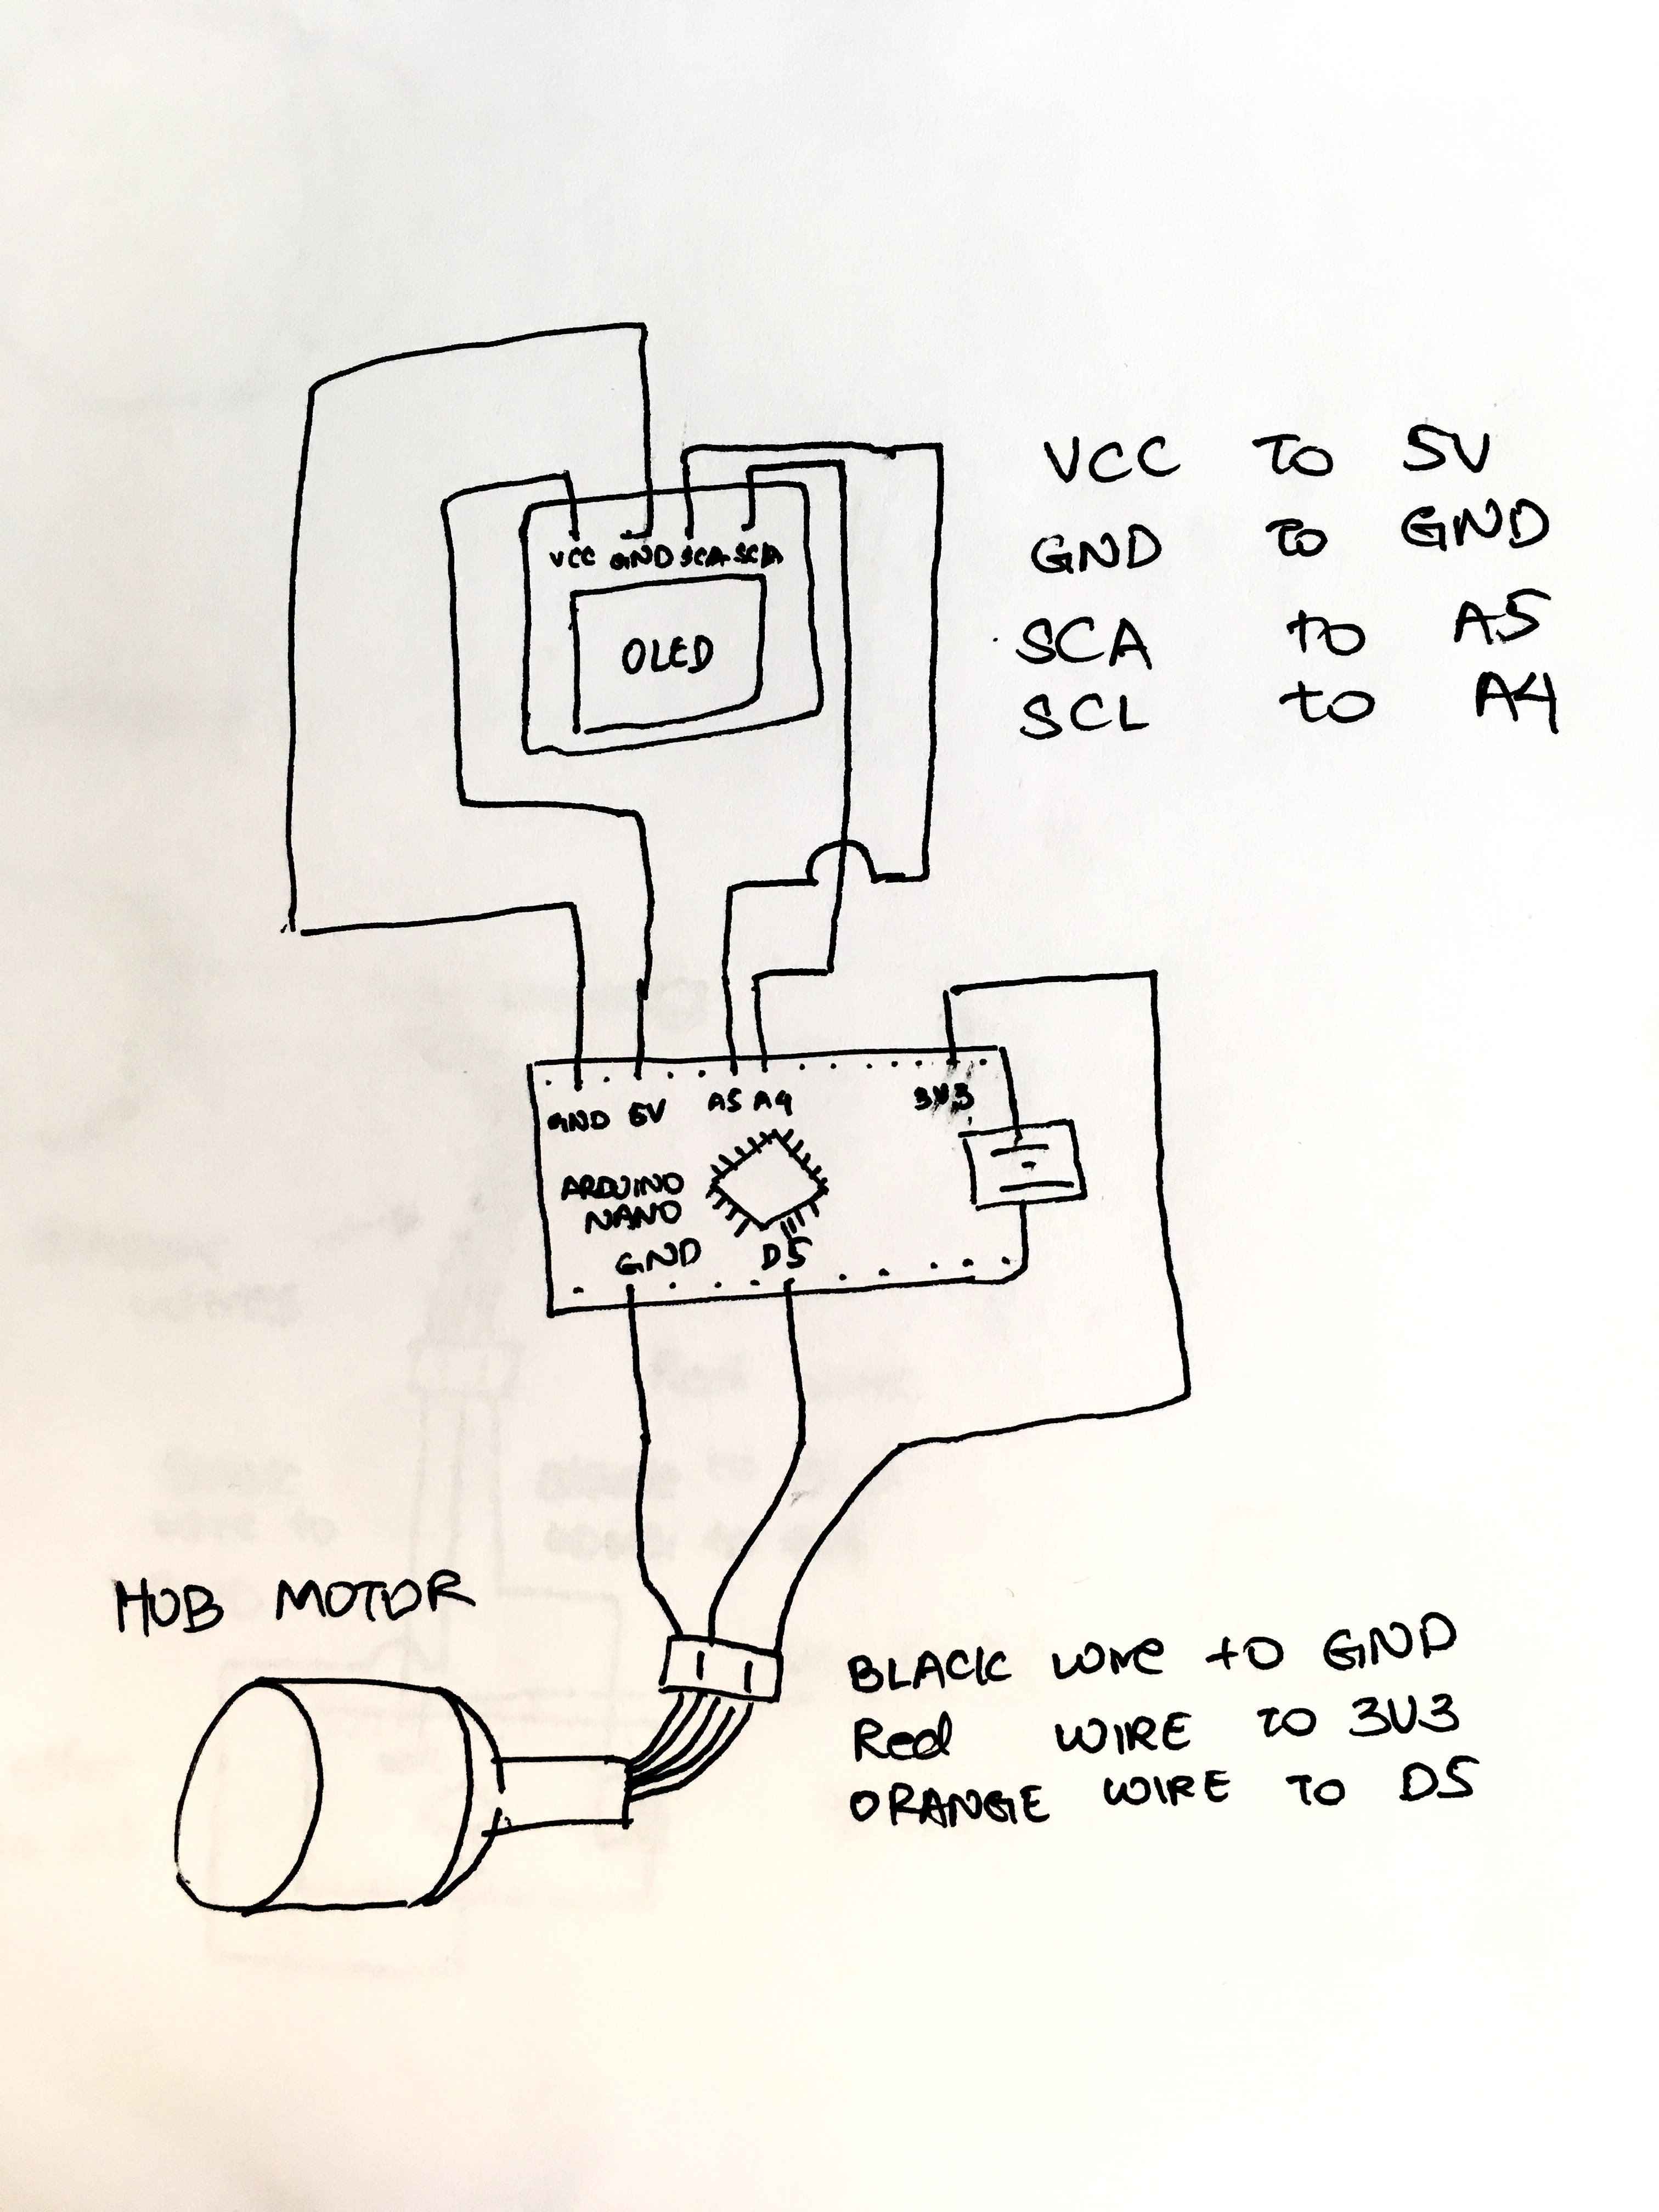 VCC TO 5V
GND to GND
SCA to A5
SCL to A4
VCC GND SCA SCA
OLED
GND 5V A5 A4 3V3
ARDUINO
NANO
GND D5
HUB MOTOR
BLACK wire to GND
Red WIRE TO 3V3
ORANGE WIRE TO D5